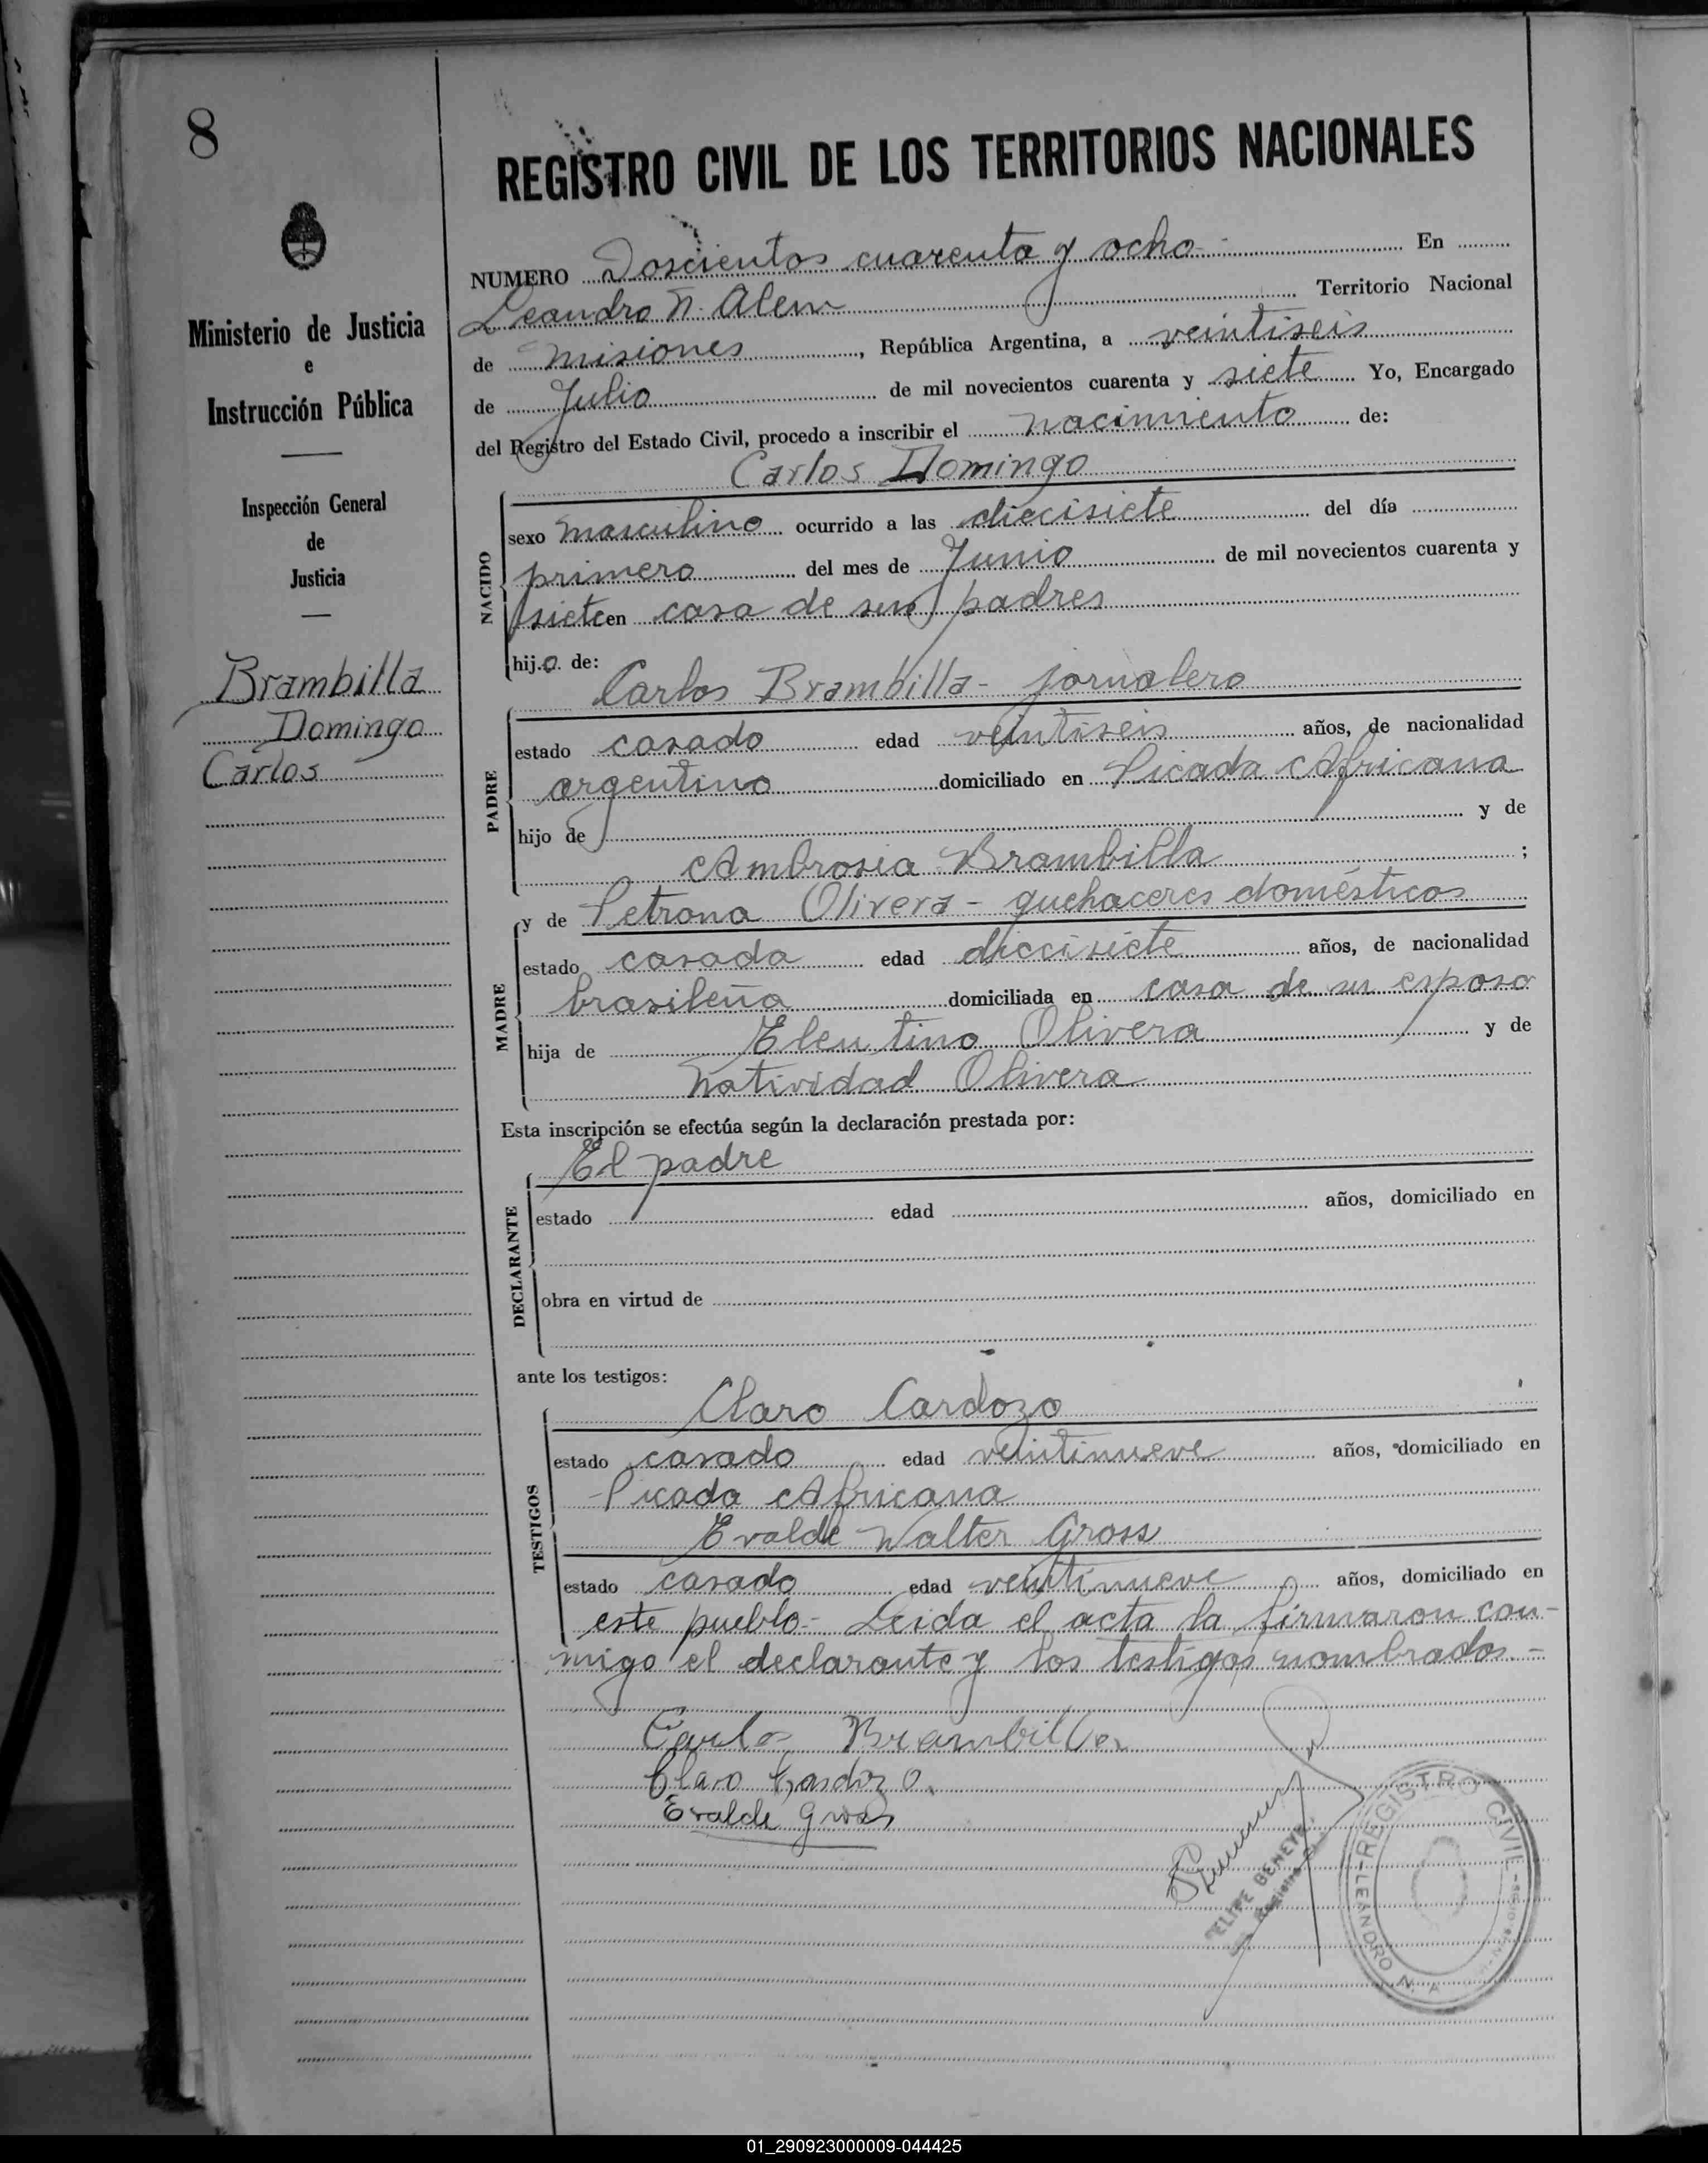 8
REGISTRO CIVIL DE LOS TERRITORIOS NACIONALES
Ministerio de Justicia
e
Instrucción Pública
Inspección General
de
Justicia
Brambilla
Domingo
Carlos
NUMERO Doscientos cuarenta y ocho En
Leandro N. Alem Territorio Nacional
de Misiones, República Argentina, a veintiseis
de Julio de mil novecientos cuarenta y siete Yo, Encargado
del Registro del Estado Civil, procedo a inscribir el nacimiento de:
Carlos Domingo
NACIDO
sexo masculino ocurrido a las diecisiete del día
primero del mes de Junio de mil novecientos cuarenta y
siete en casa de sus padres
hijo de:
Carlos Brambilla - jornalero
PADRE
estado casado edad veintiseis años, de nacionalidad
argentino domiciliado en Picada Africana
hijo de y de
Ambrosia Brambilla ;
y de Petrona Olivera - quehaceres domésticos
MADRE
estado casada edad diecisiete años, de nacionalidad
brasileña domiciliada en casa de su esposo
hija de Eleutino Olivera y de
Natividad Olivera
Esta inscripción se efectúa según la declaración prestada por:
El padre
DECLARANTE
estado edad años, domiciliado en
obra en virtud de
ante los testigos:
Claro Cardozo
TESTIGOS
estado casado edad veintinueve años, domiciliado en
Picada Africana
Evalde Walter Gross
estado casado edad veintinueve años, domiciliado en
este pueblo - Leida el acta la firmaron con-
migo el declarante y los testigos nombrados.-
Carlos Brambilla
Claro Cardozo.
Evalde Gross
FELIPE BENEYTO
REGISTRO CIVIL
LEANDRO N. A
01_290923000009-044425